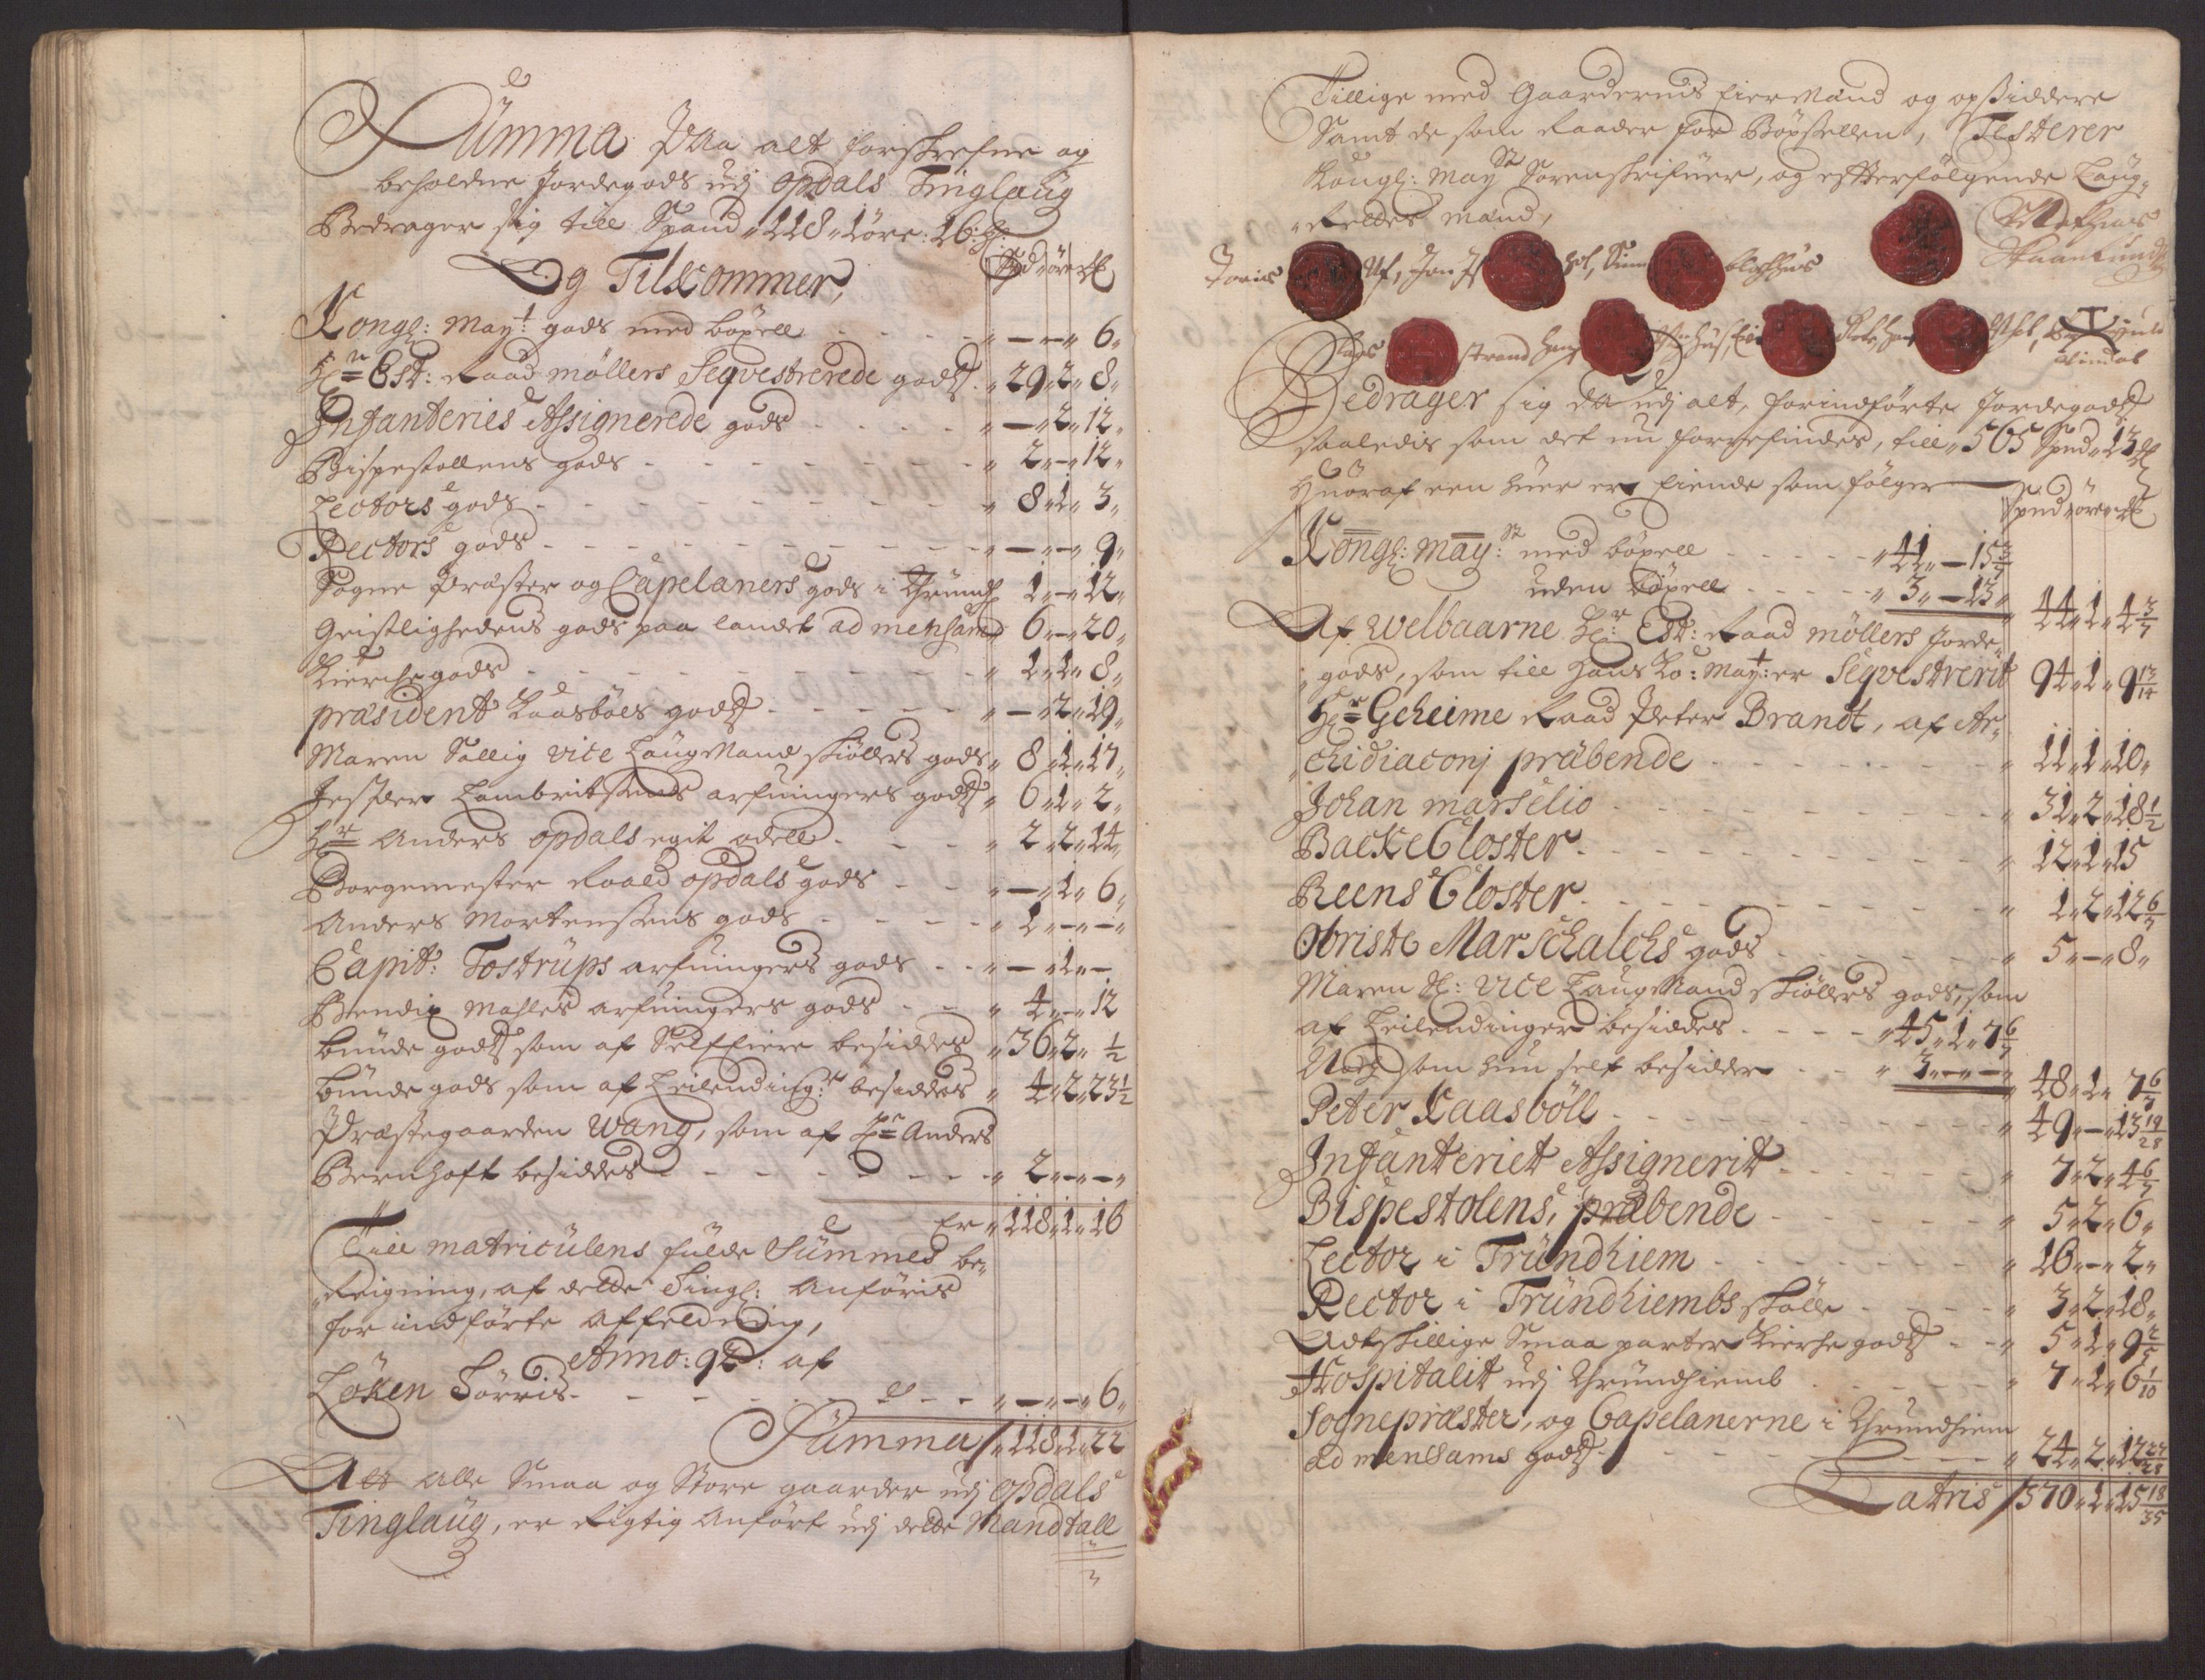 Summa Paa alt forskrefne og
beholdne Jordegods udj Opdals Tinglaug
Bedrager sig till Spand „ 118 „ 1 öre: 16: H:
Og Tilkommer, Spd „ öre „ H
Kongl: May:t gods med böxell - - - - „ — „ — „ 6 „
H:r Est: Raad möllers Seqvestrerede godz. „ 29 „ 2 „ 8 „
Infanteries Assignerede gods - - - - „ — „ 2 „ 12 „
Bispestollens gods - - - - „ 2 „ — „ 12 „
Lectors gods - - - - „ 8 „ 1 „ 3 „
Rectors gods - - - - „ — „ — „ 9 „
Sogne Præster og Capelaners gods i Thrundh 1 „ — „ 12 „
Geistlighedens gods paa landet ad mensam 6 „ — „ 20 „
Kierche gods - - - - „ 1 „ 1 „ 8 „
præsident Kaasböls godz - - - - „ — „ 2 „ 19 „
Maren Sallig vice LaugMand skiöllers gods „ 8 „ 1 „ 17 „
Jesper Lambritzens arfuingers godz „ 6 „ 1 „ 2 „
H:r Anders Opdals egit odell - - - „ 2 „ 2 „ 14 „
Borgemester Roald Opdals gods - - „ — „ 1 „ 6 „
Anders Mortensens gods - - - - „ 1 „ — „ — „
Capit: Tostrups arfuingers gods - - „ — „ 1 „ —
Bendix Mahles arfuingers gods - - „ 4 „ — „ 12
bunde godz som af SelfEiere besiddes „ 36 „ 2 „ 1/2
bunde gods som af Leilending:r besiddes „ 4 „ 2 „ 23 1/2
Præstegaarden Wang, som af H:r Anders
Bernhoft besiddes - - - - „ 2 „ — „ — „
Er „ 118 „ 1 „ 16
Till matriculens fulde Summes be„
„ Reigning, af dette Tingl: Anföris
for indförte Affeldning,
Anno: 92: af
Löken Sörris - - - - „ — „ — „ 6 „
Summa / „ 118 „ 1 „ 22
Att Alle Smaa og Store gaarder udj Opdals
Tinglaug, er Rigtig Anfört udj dette Mandtall
Tillige med Gaardernis Eiermænd og opsiddere
Samt de som Raader for Böxellen, Testerer
Kongl: May:st Sorenskrifuer, og efterfölgende Laug„
„ Rettes mænd,
Bedrager sig da udj alt, forindförte Jordegodz
saaledis som det nu forrefindes, till „ 565 Spnd „ 13 H
Huoraf een huer er Eiende som fölger — Spnd „ öre „ H
Kongl: May:st med böxell - - - - „ 41 „ — 15 3/7
uden Böxell - - - - „ 3 „ — 13 „ 44 „ 1 „ 4 3/7
Af Welbaarne H:r Est: Raad möllers Jorde„
„ gods, som till Hans Ko: May:t er Seqvestrerit 94 „ 1 „ 9 13/14
H:r Geheime Raad Peter Brandt, af Ar„
„ chidiaconj præbende - - - - „ 11 „ 1 „ 10 „
Johan marselio - - - - „ 31 „ 2 „ 18 1/2
Backe Closter - - - - „ 12 „ 1 „ 15
Reens Closter - - - - „ 1 „ 2 „ 12 6/7
Obriste Marschalchs gods - - - - „ 5 „ — „ 8 „
Maren Sl: vice LaugMand Skiöllers gods, som
af Leilendinger besiddes - - - - „ 45 „ 1 „ 7 6/7
Noch som hun self besidder - - „ 3 „ — „ — „ 48 „ 1 „ 7 6/7
Peter Kaasböll - - - - „ 49 „ — „ 13 19/28
Infanteriet Assignerit - - - - „ 7 „ 2 „ 4 6/7
Bispestolens, præbende - - - - „ 5 „ 2 „ 6 „
Lector i Trundhiem - - - - „ 16 „ — „ 2 „
Rector i Trundhiembs skolle - - - - „ 3 „ 2 „ 18 „
Adtskillige Smaa parter Kierche godz - - „ 5 „ 1 „ 9 2/5
Hospitalit udj Thrundhiemb - - - - „ 7 „ 1 „ 6 1/10
Sognepræster, og Capelanerne i Thrundhiem
ad mensams godz - - - - „ 24 „ 2 „ 12 27/28
Latris / 370 „ 1 „ 15 18/35